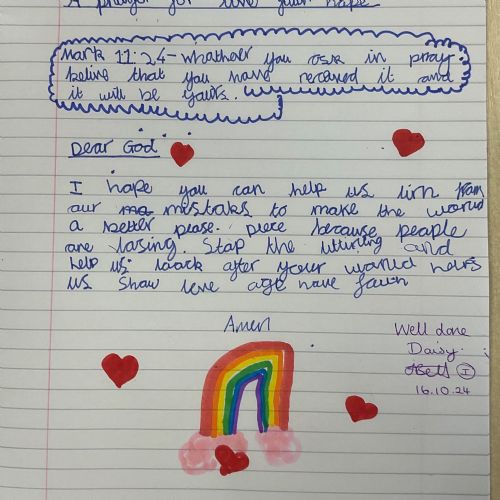 A prayer for love your hope
Mark 11:24 - whather you ask in pray
belive that you have recaved it and
it will be yours.
Dear God
I hope you can help us lirn from
our mistaks to make the world
a better piese. piece because people
are losing. Stop the and
help us loock after your world help
us show love have faith
Amen
Well done
Daisy.
I
16.10.24